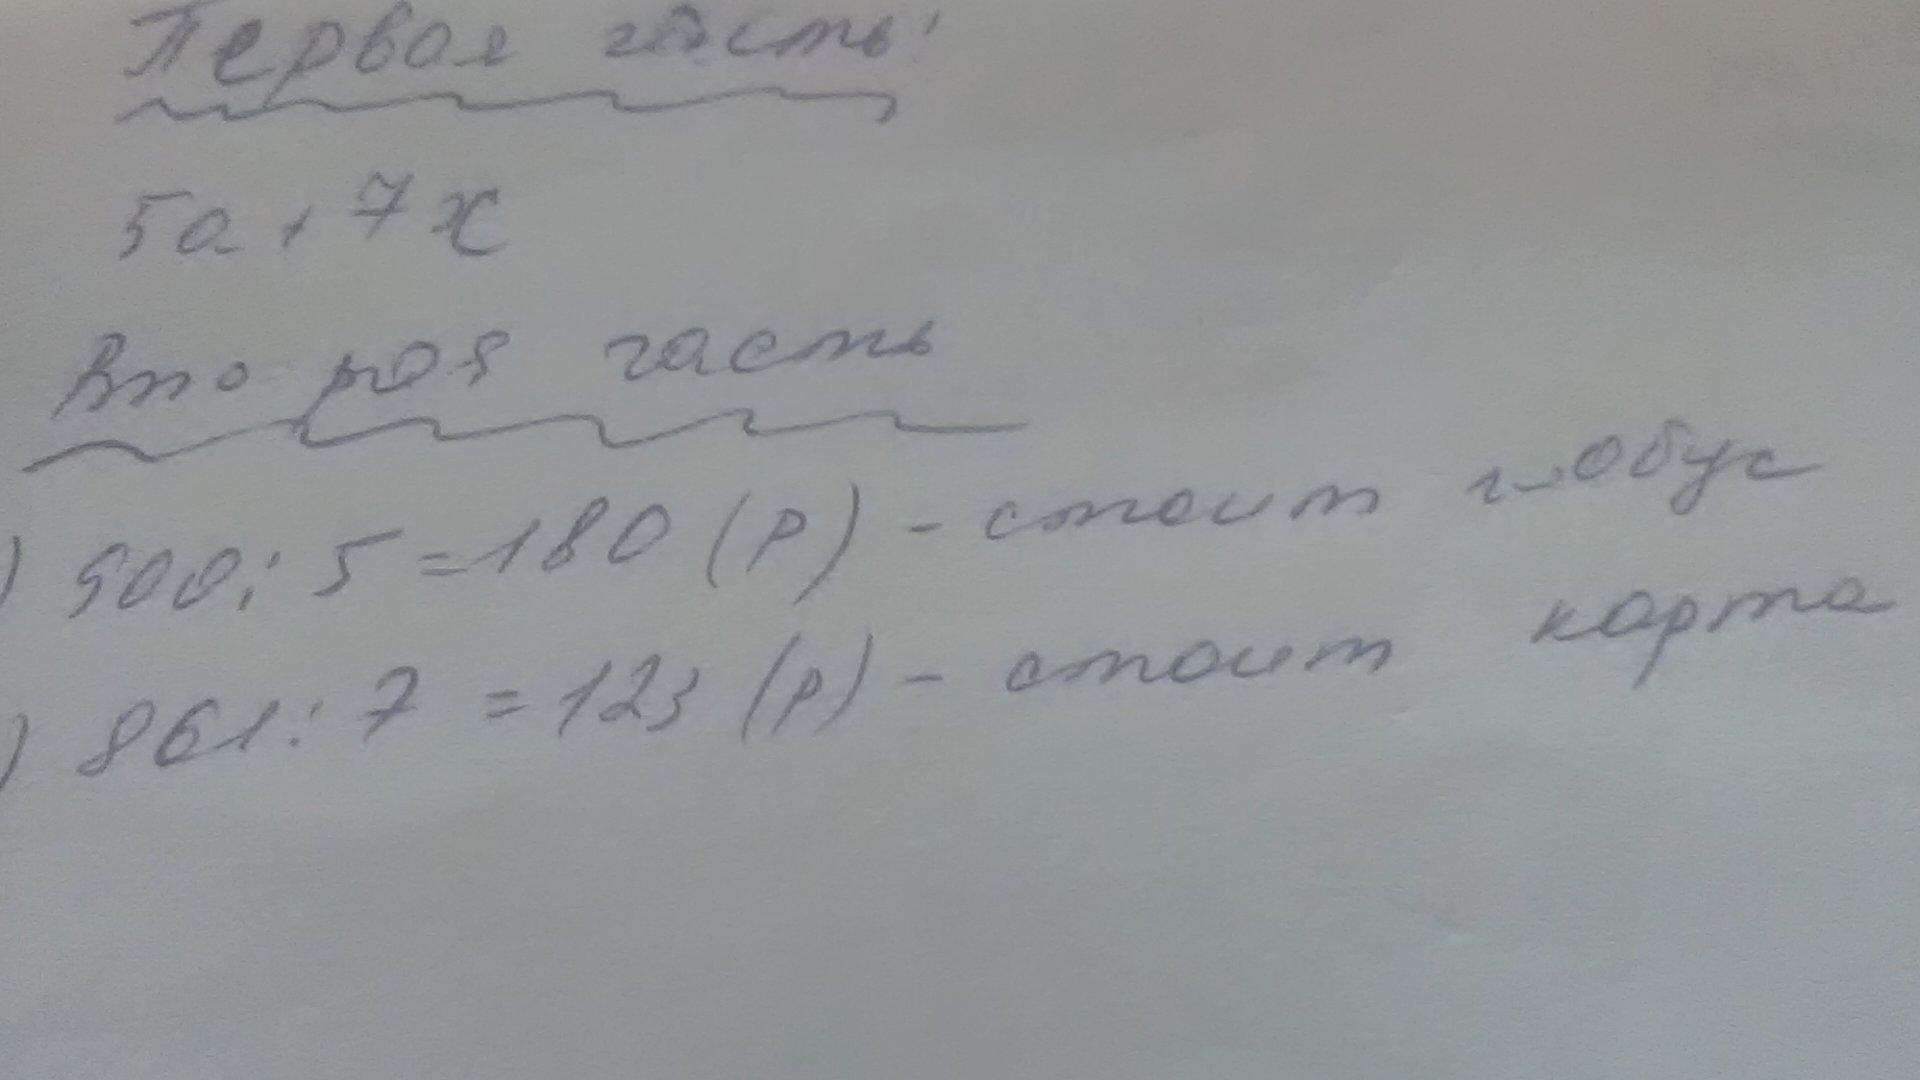 Первая часть:
5a + 7x
Вторая часть
) 900 : 5 = 180 (р) - стоит глобус
) 861 : 7 = 123 (р) - стоит карта